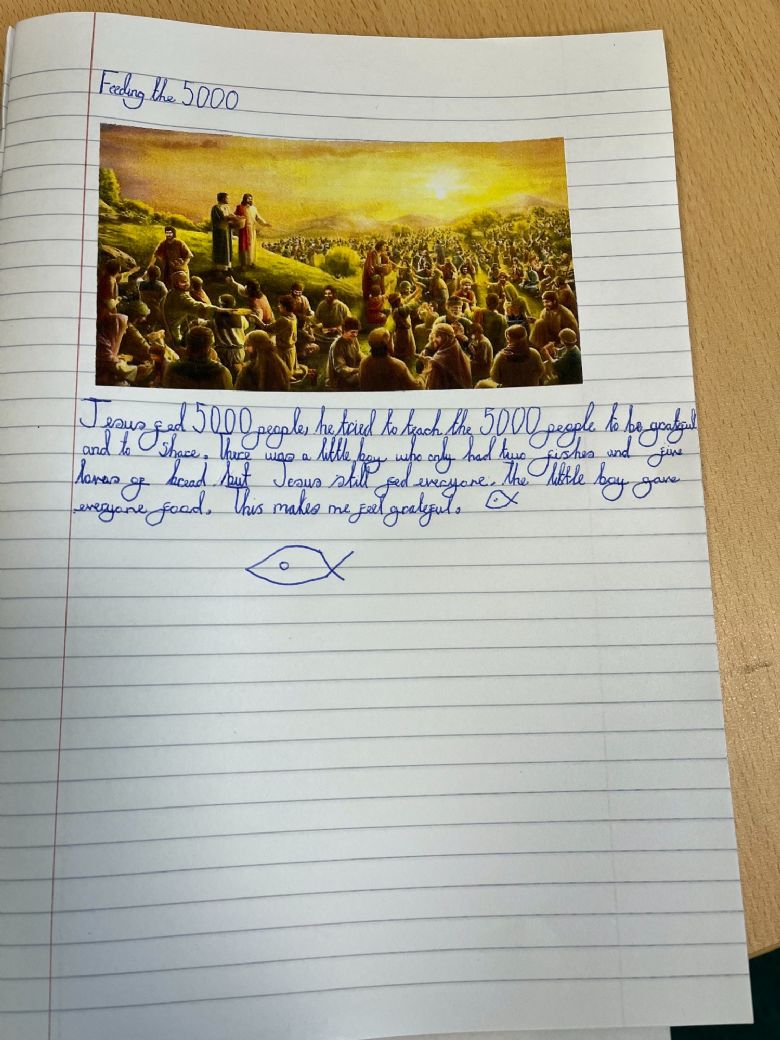 Feeding the 5000
Jesus fed 5000 people, he tried to teach the 5000 people to be grateful
and to share. There was a little boy who only had two fishes and five
loves of bread but Jesus still fed everyone. The little boy gave
everyone food. This makes me feel grateful.